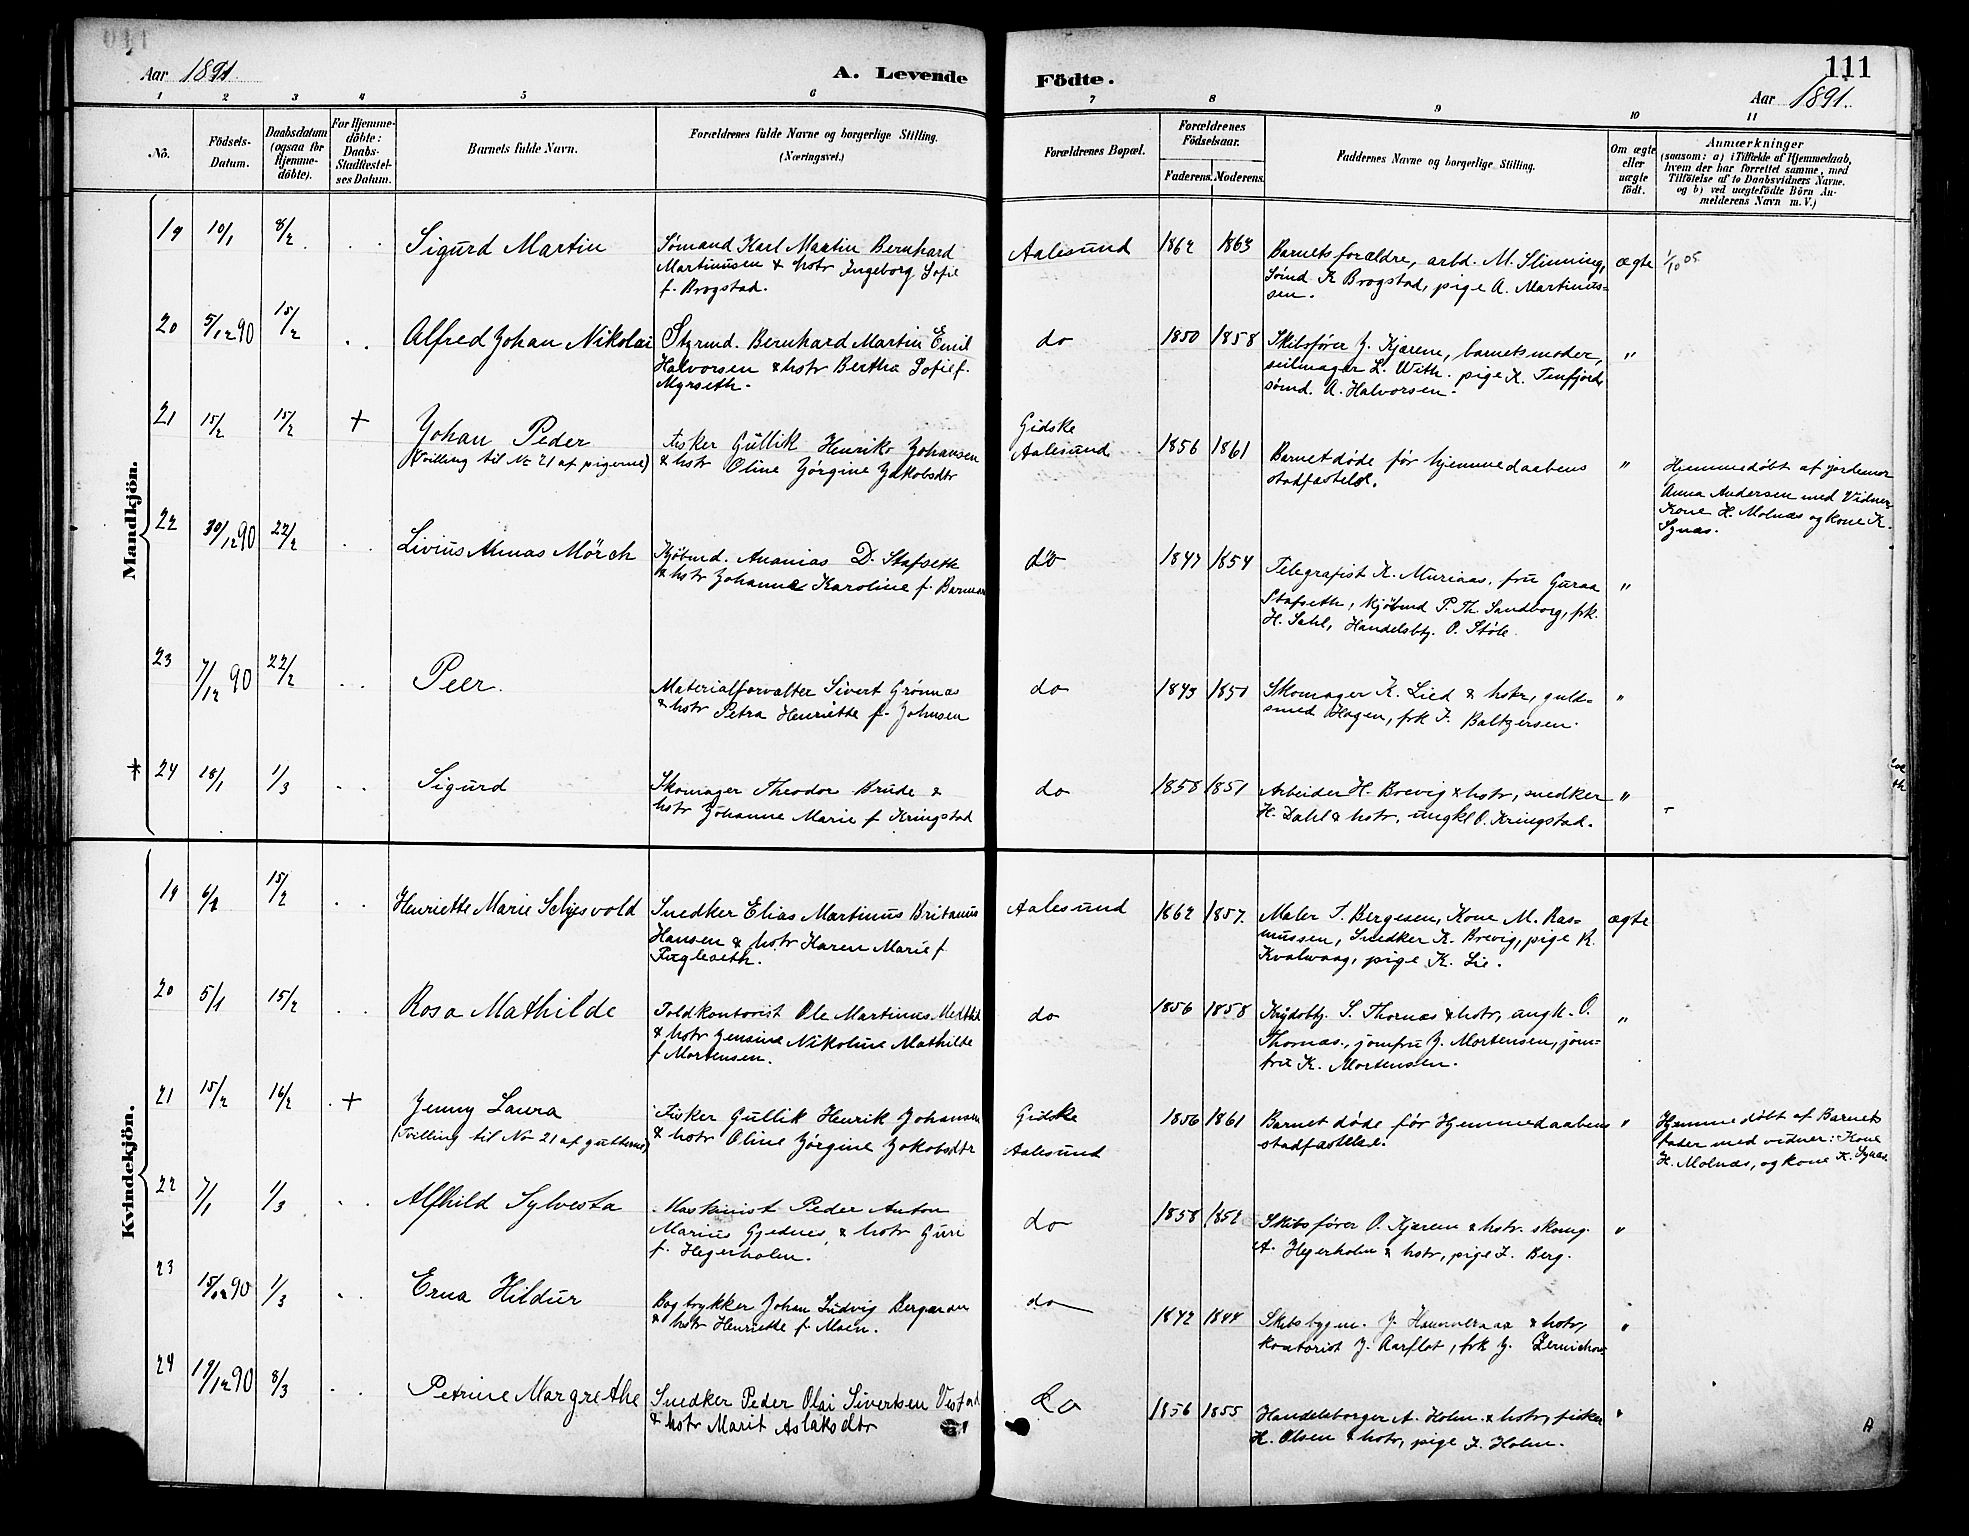 Aar 1891.
A. Levende
Födte.
111
Aar 1891.
1 2 3 4 5 6 7 8 9 10 11
No.
Födsels-Datum.
Daabsdatum (ogsaa for Hjemme-döbte).
For Hjemme-döbte: Daabs-Stadfæstel-ses Datum.
Barnets fulde Navn.
Forældrenes fulde Navne og borgerlige Stilling.
(Næringsvei.)
Forældrenes Bopæl.
Forældrenes Födselsaar.
Faderens. Moderens.
Faddernes Navne og borgerlige Stilling.
Om ægte eller uægte födt.
Anmærkninger
(saasom: a) i Tilfælde af Hjemmedaab,
hvem der har forrettet samme, med
Tilföielse af to Daabsvidners Navne.
og b) ved uægtefödte Börn An-
melderens Navn m. V.)
Mandkjön.
19 10/1 8/2 Sigurd Martin
Sømand Karl Martin Bernhard
Martinusen & hstr Ingeborg Sofie
f. Brogstad.
Aalesund 1862 1863
Barnets forældre, arbd. M. Slinning,
Sømd. K Brogstad, pige A. Martinus-
sen.
ægte 1/10 05
20 5/12 90 15/2 Alfred Johan Nikolai
Styrmd. Bernhard Martin Emil
Halvorsen & hstr Bertha Sofie f.
Myrseth.
do 1850 1858
Skibsfører J. Kjærem, barnets moder,
seilmager L. With. pige K. Tenfjord,
sømd. A. Halvorsen.
"
21 15/2 15/2 + Johan Peder
(Tvilling til No 21 af pigerne)
Fisker Gullik Henrik Johansen
& hstr Oline Jørgine Jakobsdtr
Gidske
Aalesund
1856 1861
Barnet døde før hjemmedaabens
stadfæstelse.
"
Hjemmedøbt af jordemor
Anna Andersen med Vidner
Kone H. Molnæs og kone K.
Synæs.
22 30/12 90 22/2 Livius Mørch
Kjøbmd. Ananias D. Stafseth
& hstr Johanne Karoline f.
do 1847 1854
Telegrafist K. Muriaas, fru Guraa
Stafseth, kjøbmd P. Th. Sandborg, frk.
H. Dahl, Handelsbtj. O. Støle.
"
23 7/12 90 22/2 Peer.
Materialforvalter Sivert Grønnæs
& hstr Petra Henriette f. Johnsen
do 1843 1851
Skomager K. Lied & hstr, guld-
smed Hagen, frk J. Baltzersen.
"
+ 24 18/1 1/3 Sigurd
Skomager Theodor Brude &
hstr Johanne Marie f Kringstad
do 1858 1851
Arbeider H. Brevig & hstr, snedker
H. Dahl & hstr, ungkl O. Kringstad.
"
Kvindekjön.
19 6/2 15/2 Henriette Marie Seljesvold
Snedker Elias Martinus Britanus
Hansen & hstr Karen Marie f
Fugleseth.
Aalesund 1862 1857.
Maler T. Bergesen, Kone M. Ras-
mussen, Snedker K. Brevig, pige R.
Kvalvaag, pige K. Lie.
ægte
20 5/1 15/2 Rosa Mathilde
Toldkontorist Ole Martinus
& hstr Jensine Nikoline Mathilde
f Mortensen.
do 1856 1858
S. Thornæs & hstr, ungk. O.
Thornæs, jomfru J. Mortensen, jom-
fru K. Mortensen.
"
21 15/2 16/2 + Jenny Laura
(Tvilling til No 21 af gutterne)
Fisker Gullik Henrik Johansen
& hstr Oline Jørgine Jakobsdtr
Gidske
Aalesund
1856 1861
Barnet døde før Hjemmedaabens
stadfæstelse.
"
Hjemmedøbt af Barnets
fader med vidner: Kone
H. Molnæs, og kone K. Synæs
22 7/1 1/3 Alfhild Sylvesta
Maskinist Peder Anton
Marius Gjednes & hstr Guri
f. Hegerholm.
do 1858 1852
Skibsfører O. Kjærem & hstr. skomg.
A. Hegerholm & hstr, pige J. Berg.
"
23 15/12 90 1/3 Erna Hildur
Bogtrykker Johan Ludvig
& hstr Henriette f. Moen.
do 1842 1844
Skibsbygm. J. & hstr,
kontorist J. Aarflot, frk J.
"
24 19/12 90 8/3 Petrine Margrethe
Snedker Peder Olai Sivertsen
& hstr Marit Aslaksdtr
do 1856 1855
Handelsborger A. Holm & hstr, fisker
H. Olsen & hstr, pige J. Holm.
"